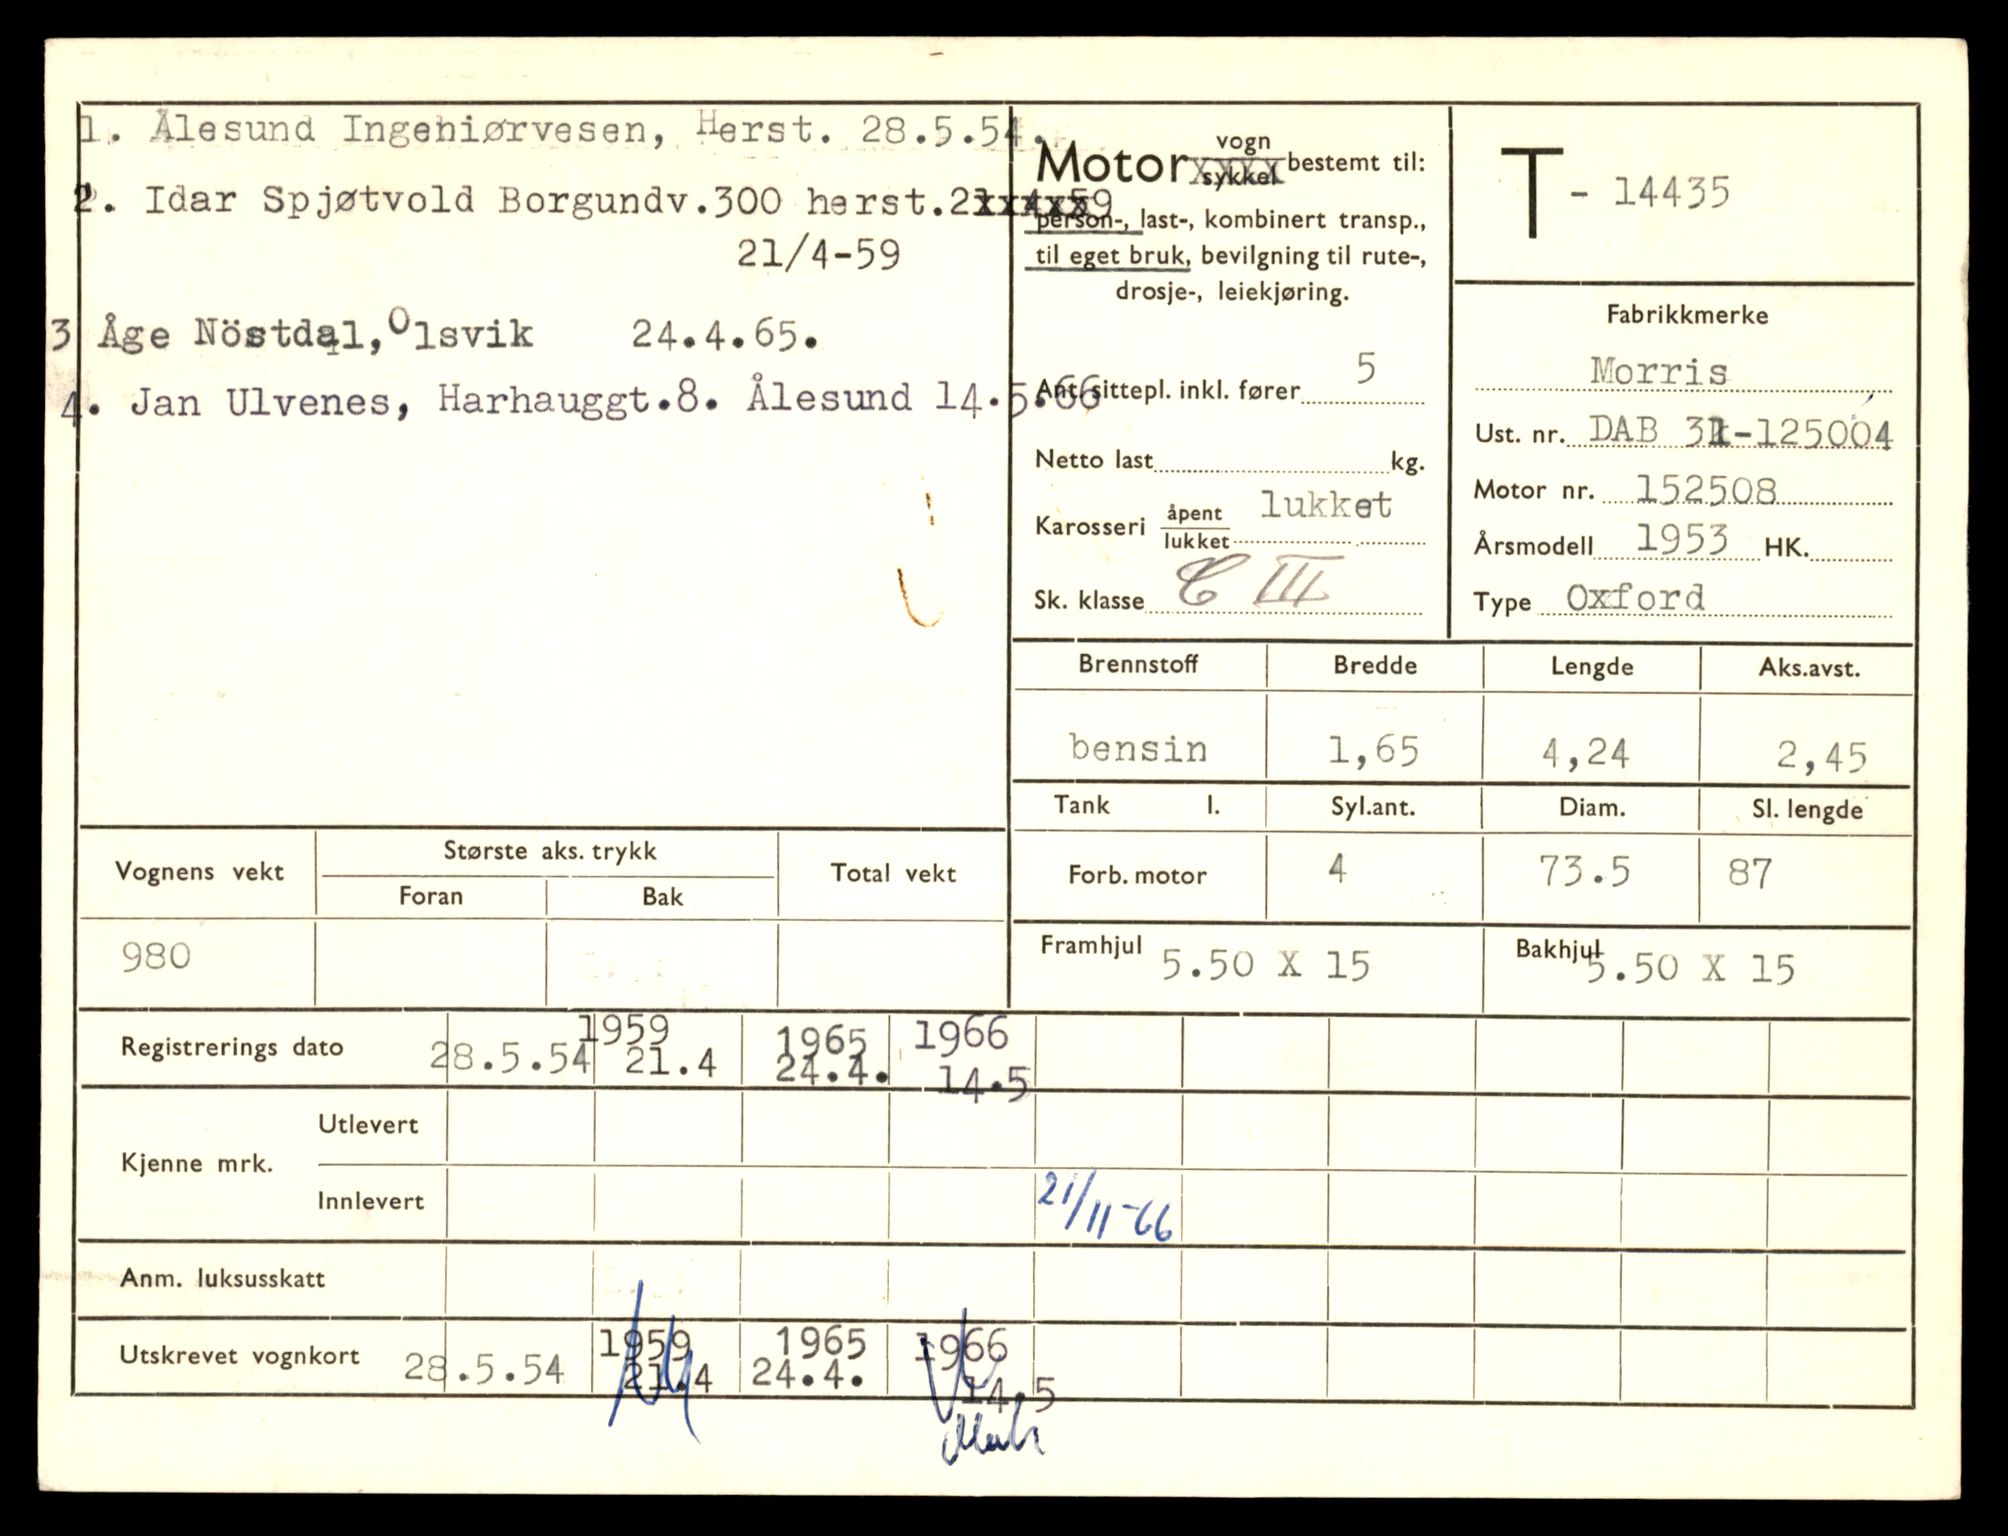 1. Ålesund Ingeniørvesen, Herst. 28.5.54.
2. Idar Spjøtvold Borgundv.300 herst.21xx4x59
21/4-59
3 Åge Nöstdal, Olsvik 24.4.65.
4. Jan Ulvenes, Harhauggt.8. Ålesund 14.5.66
Motor vogn/sykkel bestemt til:
person-, last-, kombinert transp.,
til eget bruk, bevilgning til rute-,
drosje-, leiekjøring.
Ant. sittepl. inkl. fører 5
Netto last kg.
Karosseri åpent/lukket lukket
Sk. klasse C III
T - 14435
Fabrikkmerke
Morris
Ust. nr. DAB 31-125004
Motor nr. 152508
Årsmodell 1953 HK.
Type Oxford
Brennstoff Bredde Lengde Aks.avst.
bensin 1,65 4,24 2,45
Tank l. Syl.ant. Diam. Sl. lengde
Forb. motor 4 73.5 87
Framhjul 5.50 X 15 Bakhjul 5.50 X 15
Vognens vekt Største aks. trykk Total vekt
Foran Bak
980
Registrerings dato 28.5.54 1959 21.4 1965 24.4. 1966 14.5
Kjenne mrk. Utlevert
Innlevert 21/11-66
Anm. luksusskatt
Utskrevet vognkort 28.5.54 1959 21.4 1965 24.4. 1966 14.5